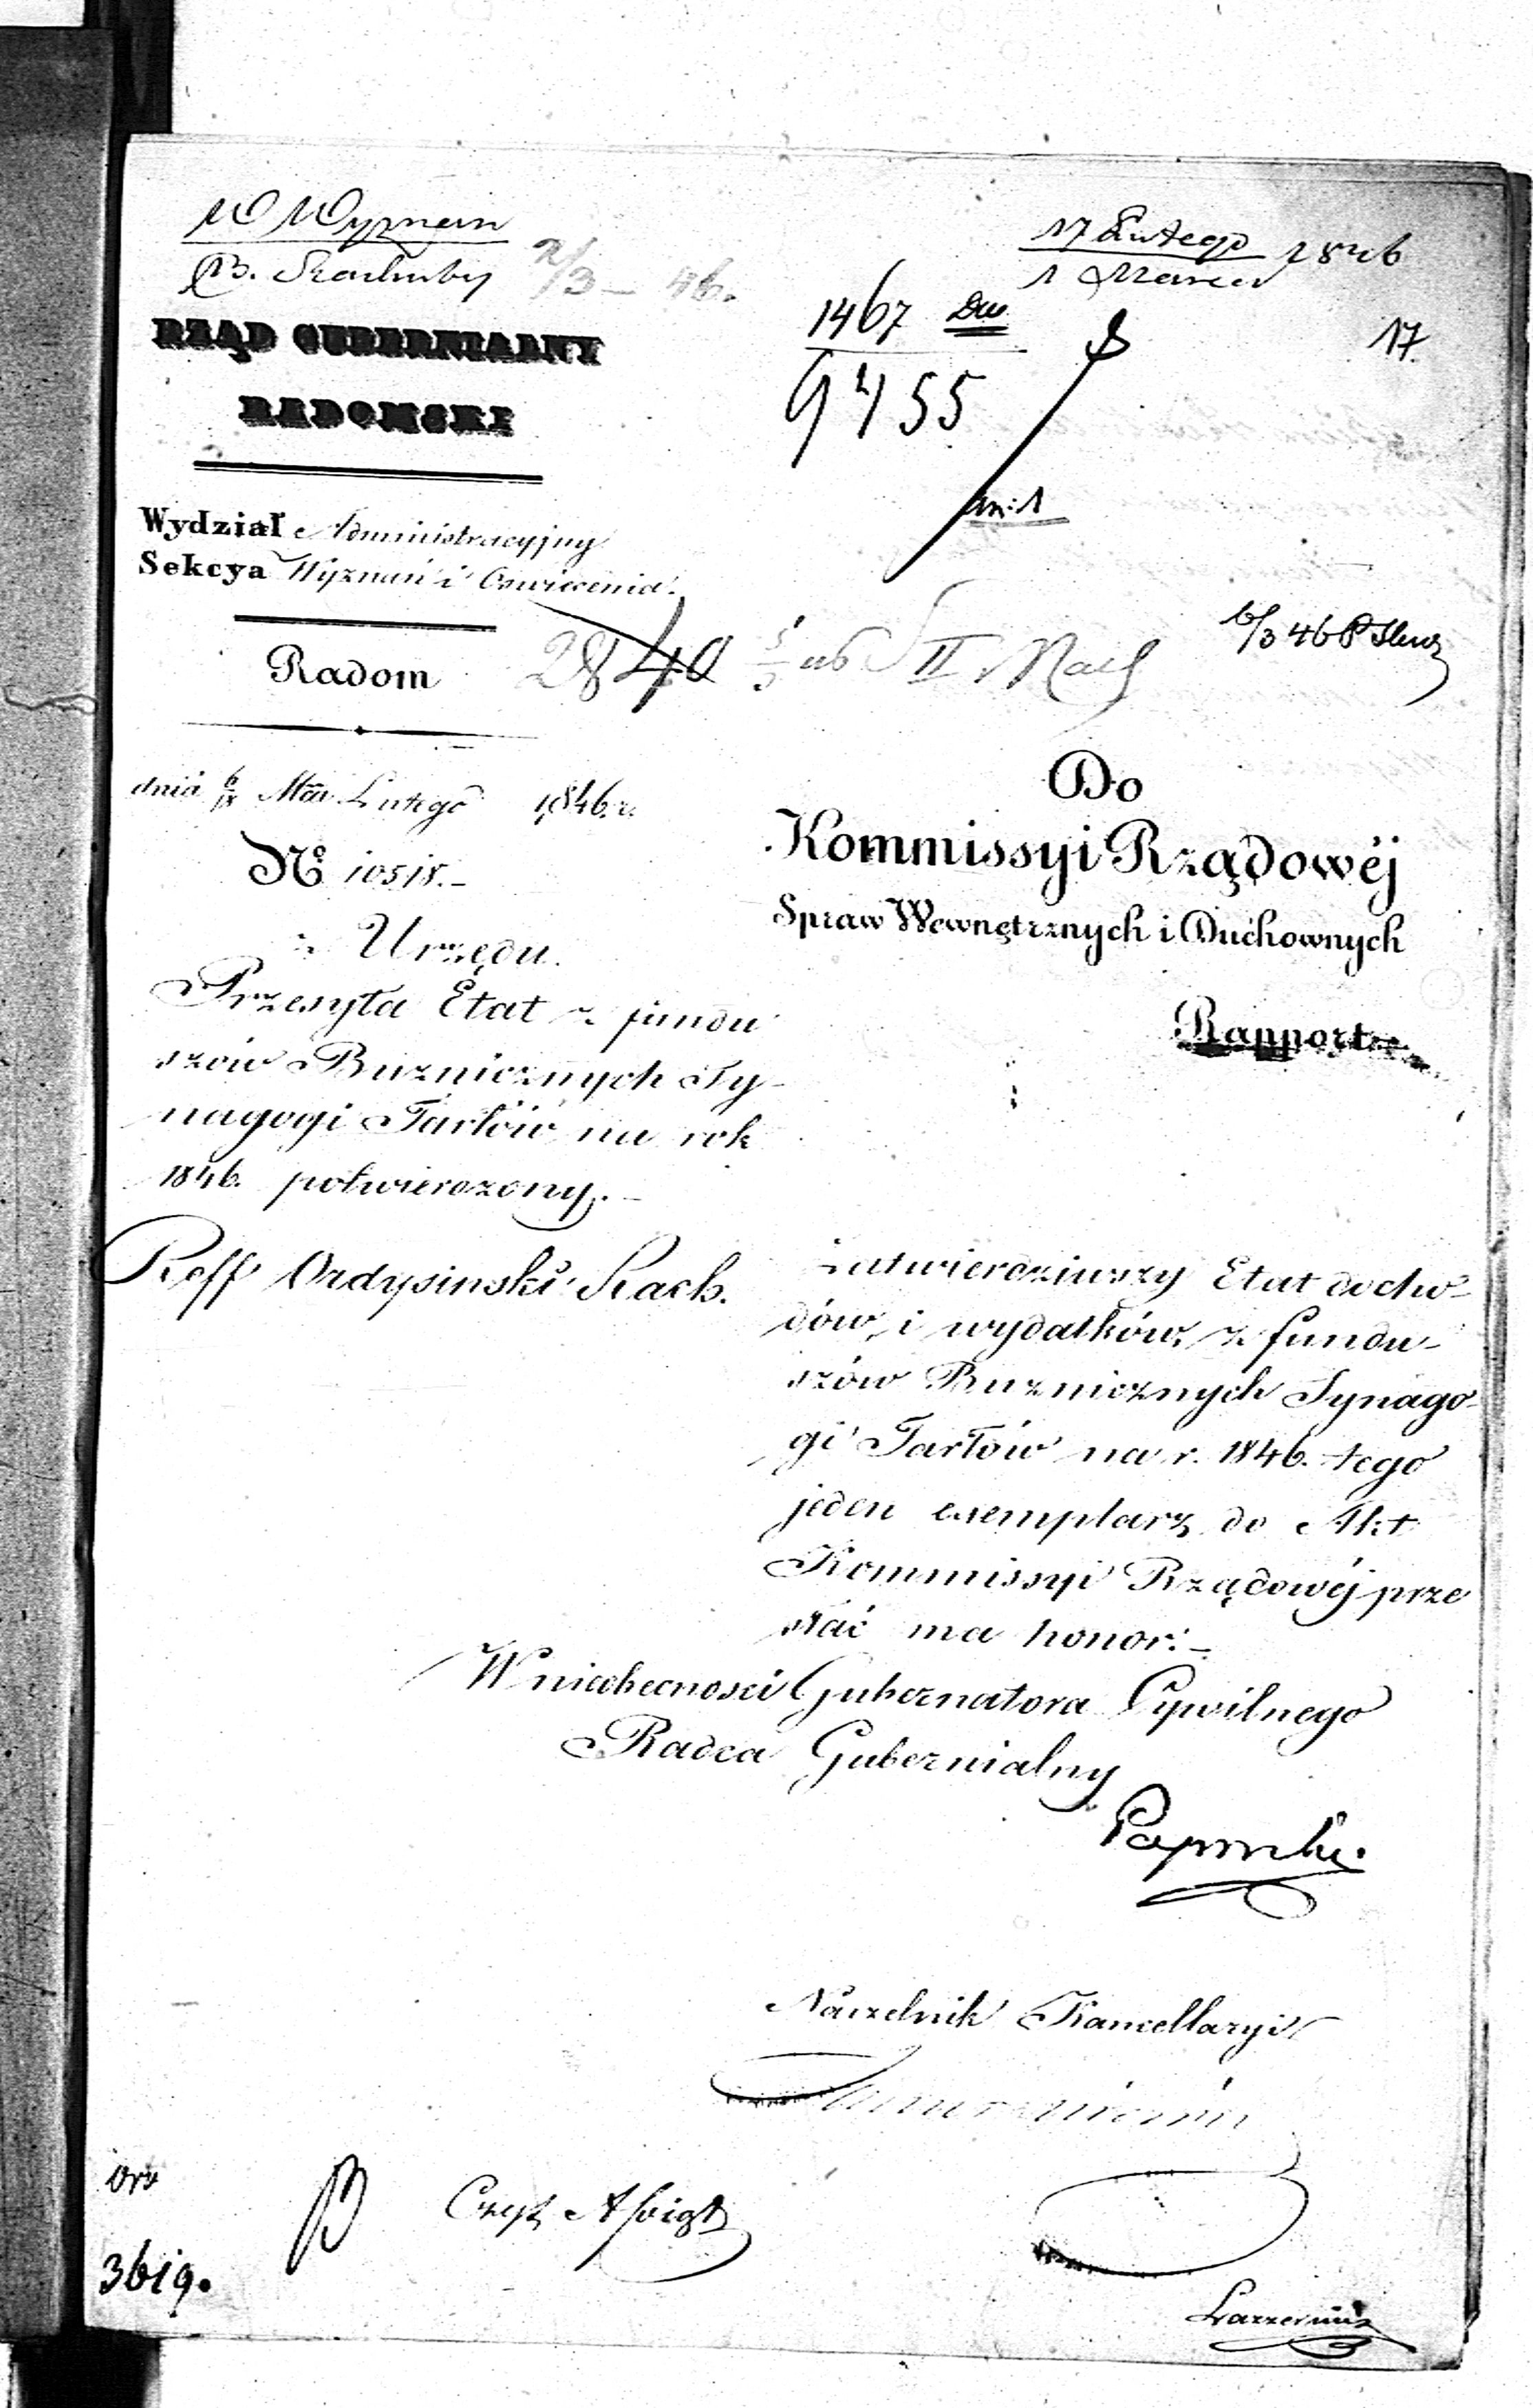 W Wyznań
17 Lutego
1 Marca 1846
B. Rachuby
2/3 - 46.
1467
9455
17
RZĄD GUBERNIALNY
RADOMSKI
Wydział Administracyjny
Sekcya Wyznań i Oswiecenia.
an: 1
Radom
2840
II Rach
6/3 46
dnia 6/18 Lutego 1846 r.
No 10518.-
z Urzędu.
Przesyła Etat z fundu
szów Buznicznych Sy-
nagogi Tarłów na rok
1846. potwierdzony.-
Reff Ordysinski Rach.
Do
Kommissyi Rządowéj
Spraw Wewnętrznych i Duchownych
Rapport
Zatwierdziwszy Etat docho-
dów i wydatków z fundu-
szów Buznicznych Synago-
gi Tarłów na r. 1846. tego
jeden exemplarz do Akt
Kommissyi Rządowéj prze
słać ma honor.-
W nieobecnosci Gubernatora Cywilnego
Radca Gubernialny
Naczelnik Kancellaryi
3619.